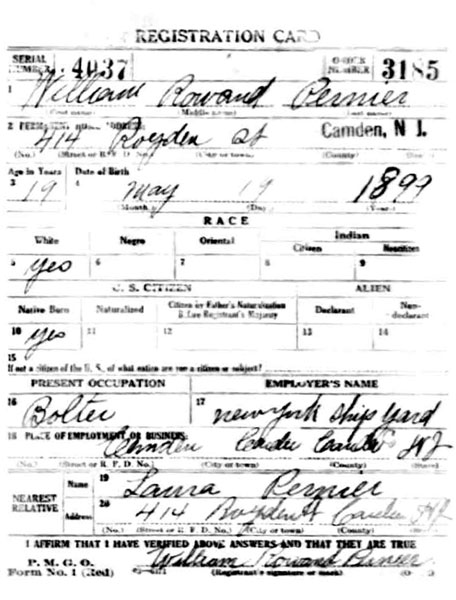 REGISTRATION CARD
SERIAL NUMBER 4037 ORDER NUMBER 3185
1 William Rowand Pernier
(First name) (Middle name) (Last name)
2 PERMANENT HOME ADDRESS:
414 Royden St Camden, N J.
(No.) (Street or R. F. D. No.) (City or town) (County) (State)
Age in Years Date of Birth
3 19 4 May 19 1899
(Month) (Day) (Year)
RACE
White Negro Oriental Indian
Citizen Noncitizen
5 yes 6 7 8 9
U. S. CITIZEN ALIEN
Native Born Naturalized Citizen by Father's Naturalization Before Registrant's Majority Declarant Non-declarant
10 yes 11 12 13 14
15
If not a citizen of the U. S., of what nation are you a citizen or subject?
PRESENT OCCUPATION EMPLOYER'S NAME
16 Bolter 17 New York Ship Yard
18 PLACE OF EMPLOYMENT OR BUSINESS:
Camden NJ
(No.) (Street or R. F. D. No.) (City or town) (County) (State)
NEAREST RELATIVE
Name 19 Laura Pernier
Address 20 414 Royden St Camden NJ
(No.) (Street or R. F. D. No.) (City or town) (County) (State)
I AFFIRM THAT I HAVE VERIFIED ABOVE ANSWERS AND THAT THEY ARE TRUE
P. M. G. O.
Form No. 1 (Red) William Rowand Pernier
(Registrant's signature or mark)